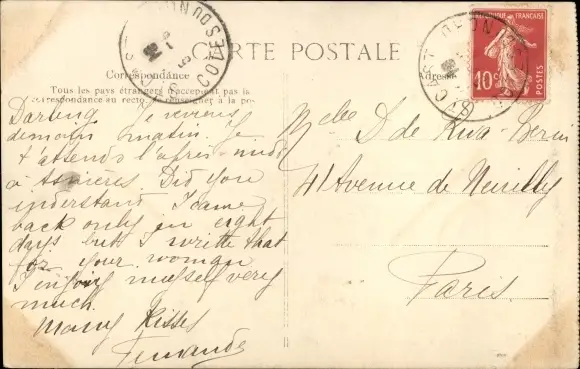 CARTE POSTALE
Correspondance
Adresse
Tous les pays étrangers n'acceptent pas la
correspondance au recto. Se renseigner à la pos
RÉPUBLIQUE FRANÇAISE
10c
POSTES
Darling Je reviens
demain matin. Je
t'attends l'après-midi
à Asnières. Did you
understand I came
back only in eight
days but I writte that
for your woman
I enjoy myself very
much.
Many Kisses
Fernande
Melle D de Riva-Berni
41 Avenue de Neuilly
Paris.